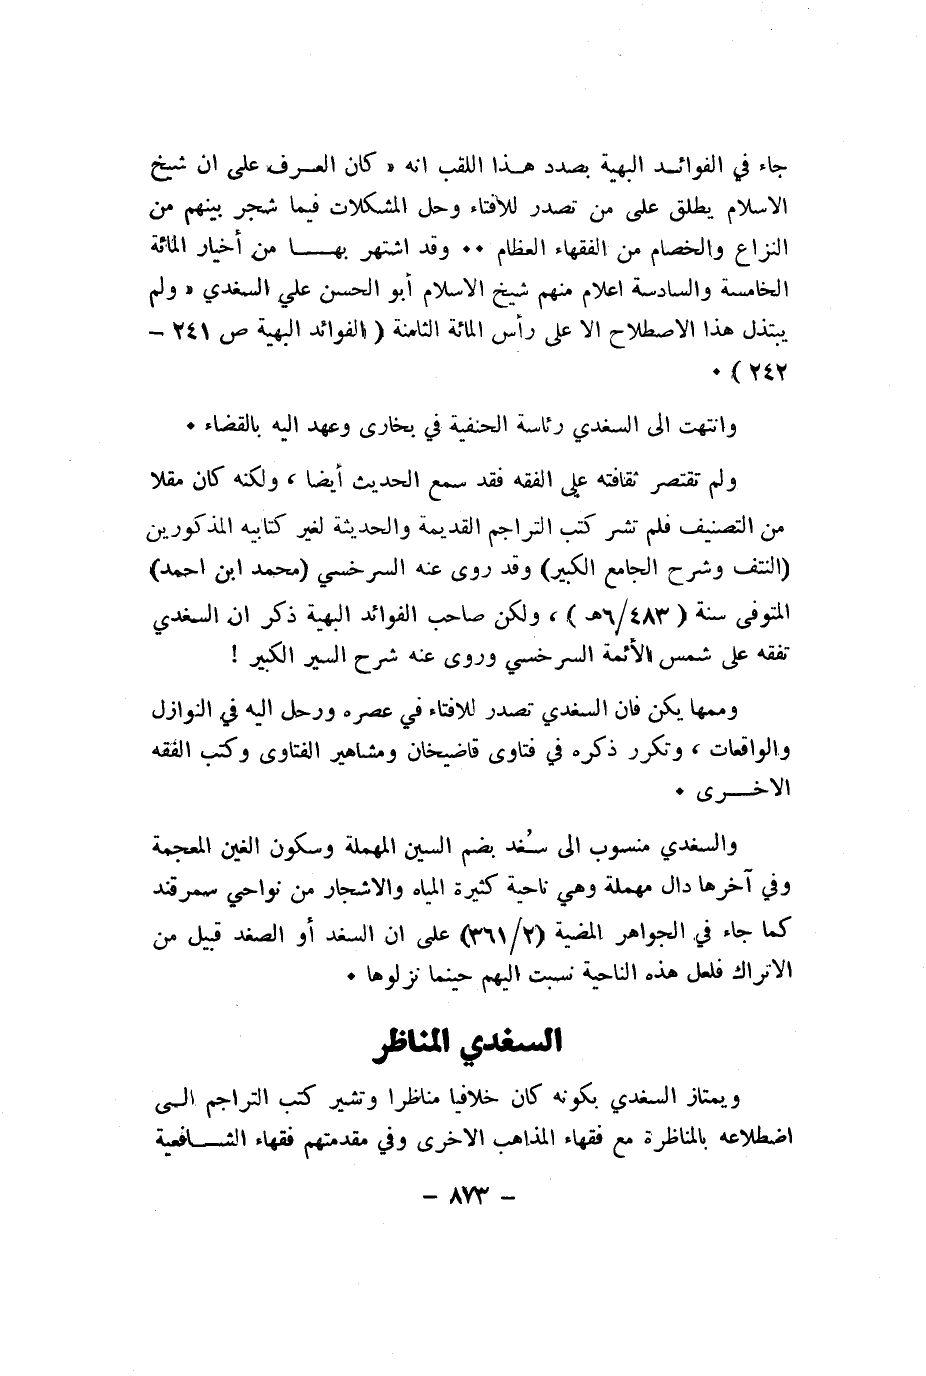 جاء في الفوائد البهية بصدد هذا اللقب انه « كان العرف على ان شيخ
الاسلام يطلق على من تصدر للافتاء وحل المشكلات فيما شجر بينهم من
النزاع والخصام من الفقهاء العظام ٠٠ وقد اشتهر بهـا من أخيار المائة
الخامسة والسادسة اعلام منهم شيخ الاسلام أبو الحسن علي السغدي « ولم
يبتذل هذا الاصطلاح الا على رأس المائة الثامنة ( الفوائد البهية ص ٢٤١ –
٢٤٢ ) ٠
وانتهت الى السغدي رئاسة الحنفية في بخارى وعهد اليه بالقضاء ٠
ولم تقتصر ثقافته على الفقه فقد سمع الحديث أيضا ، ولكنه كان مقلا
من التصنيف فلم تشر كتب التراجم القديمة والحديثة لغير كتابيه المذكورين
(النتف وشرح الجامع الكبير) وقد روى عنه السرخسي (محمد ابن احمد)
المتوفى سنة ( ٦/٤٨٣هـ ) ، ولكن صاحب الفوائد البهية ذكر ان السغدي
تفقه على شمس الأئمة السرخسي وروى عنه شرح السير الكبير !
ومهما يكن فان السغدي تصدر للافتاء في عصره ورحل اليه في النوازل
والواقعات ، وتكرر ذكره في فتاوى قاضيخان ومشاهير الفتاوى وكتب الفقه
الاخـرى ٠
والسغدي منسوب الى سُغد بضم السين المهملة وسكون الغين المعجمة
وفي آخرها دال مهملة وهي ناحية كثيرة المياه والاشجار من نواحي سمرقند
كما جاء في الجواهر المضية (٣٦١/٢) على ان السغد أو الصغد قبيل من
الاتراك فلعل هذه الناحية نسبت اليهم حينما نزلوها ٠
السغدي المناظر
ويمتاز السغدي بكونه كان خلافيا مناظرا وتشير كتب التراجم الـى
اضطلاعه بالمناظرة مع فقهاء المذاهب الاخرى وفي مقدمتهم فقهاء الشـافعية
– ٨٧٣ –